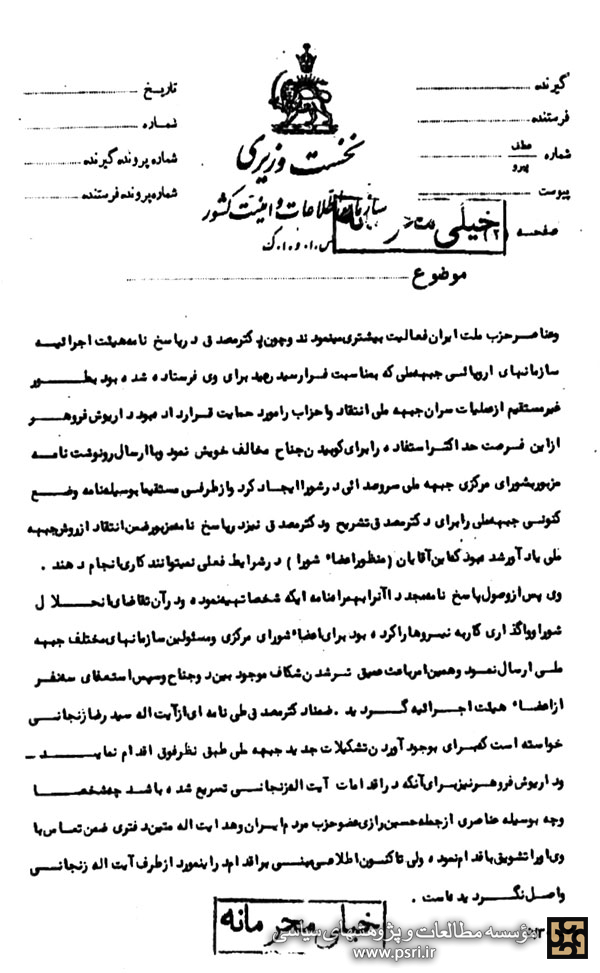 گیرنده
فرستنده
شماره عطف پیرو
پیوست
صفحه (۲)
تاریخ
شماره
شماره پرونده گیرنده
شماره پرونده فرستنده
نخست وزیری
سازمان اطلاعات و امنیت کشور
س.ا.و.ا.ک
خیلی محرمانه
موضوع
وعناصر حزب ملت ایران فعالیت بیشتری مینمودند وچون دکتر مصدق در پاسخ نامه هیئت اجرائیه
سازمانهای اروپائی جبهه ملی که بمناسبت فرارسید عید برای وی فرستاده شده بود بطور
غیرمستقیم از عملیات سران جبهه ملی انتقاد واحزاب را مورد حمایت قرارداده بود داریوش فروهر
از این فرصت حداکثر استفاده را برای کوبیدن جناح مخالف خویش نمود وباارسال رونوشت نامه
مزبور بشورای مرکزی جبهه ملی سروصدائی در شورا ایجاد کرد واز طرفی مستقیما بوسیله نامه وضع
کنونی جبهه ملی را برای دکتر مصدق تشریح ودکتر مصدق نیز در پاسخ نامه مزبور ضمن انتقاد از روش جبهه
ملی یادآور شده بود که این آقایان (منظور اعضاء شورا) در شرایط فعلی نمیتوانند کاری انجام دهند.
وی پس از وصول پاسخ نامه مجددا آنرا بهمراه نامه ایکه شخصا تهیه نموده ودر آن تقاضای انحلال
شورا وواگذاری کار به نیروها را کرده بود برای اعضاء شورای مرکزی ومسئولین سازمانهای مختلف جبهه
ملی ارسال نمود وهمین امر باعث عمیق تر شدن شکاف موجود بین دو جناح وسپس استعفای سه نفر
از اعضاء هیئت اجرائیه گردید. ضمنا دکتر مصدق طی نامه ای از آیت اله سید رضا زنجانی
خواسته است که برای بوجود آوردن تشکیلات جدید جبهه ملی طبق نظر فوق اقدام نماید ـ
وداریوش فروهر نیز برای آنکه در اقدامات آیت اله زنجانی تسریع شده باشد چه شخصا
وچه بوسیله عناصری از جمله حسین رازی عضو حزب مردم ایران وهدایت اله متین دفتری ضمن تماس با
وی اورا تشویق باقدام نموده ولی تاکنون اطلاعی مبنی بر اقدام در اینمورد از طرف آیت اله زنجانی
واصل نگردیده است.
خیلی محرمانه
مؤسسه مطالعات و پژوهشهای سیاسی
www.psri.ir